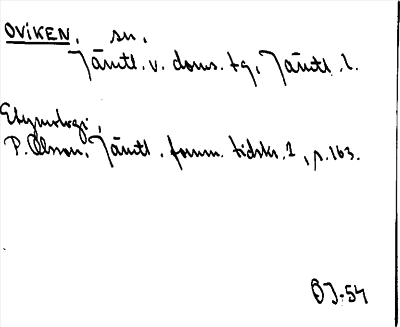 OVIKEN. sn.
Jämtl. v. doms. tg, Jämtl. l.
Etymologi,
P. Olsson, Jämtl. fornm. tidskr. 1, s. 163.
ÖJ-54